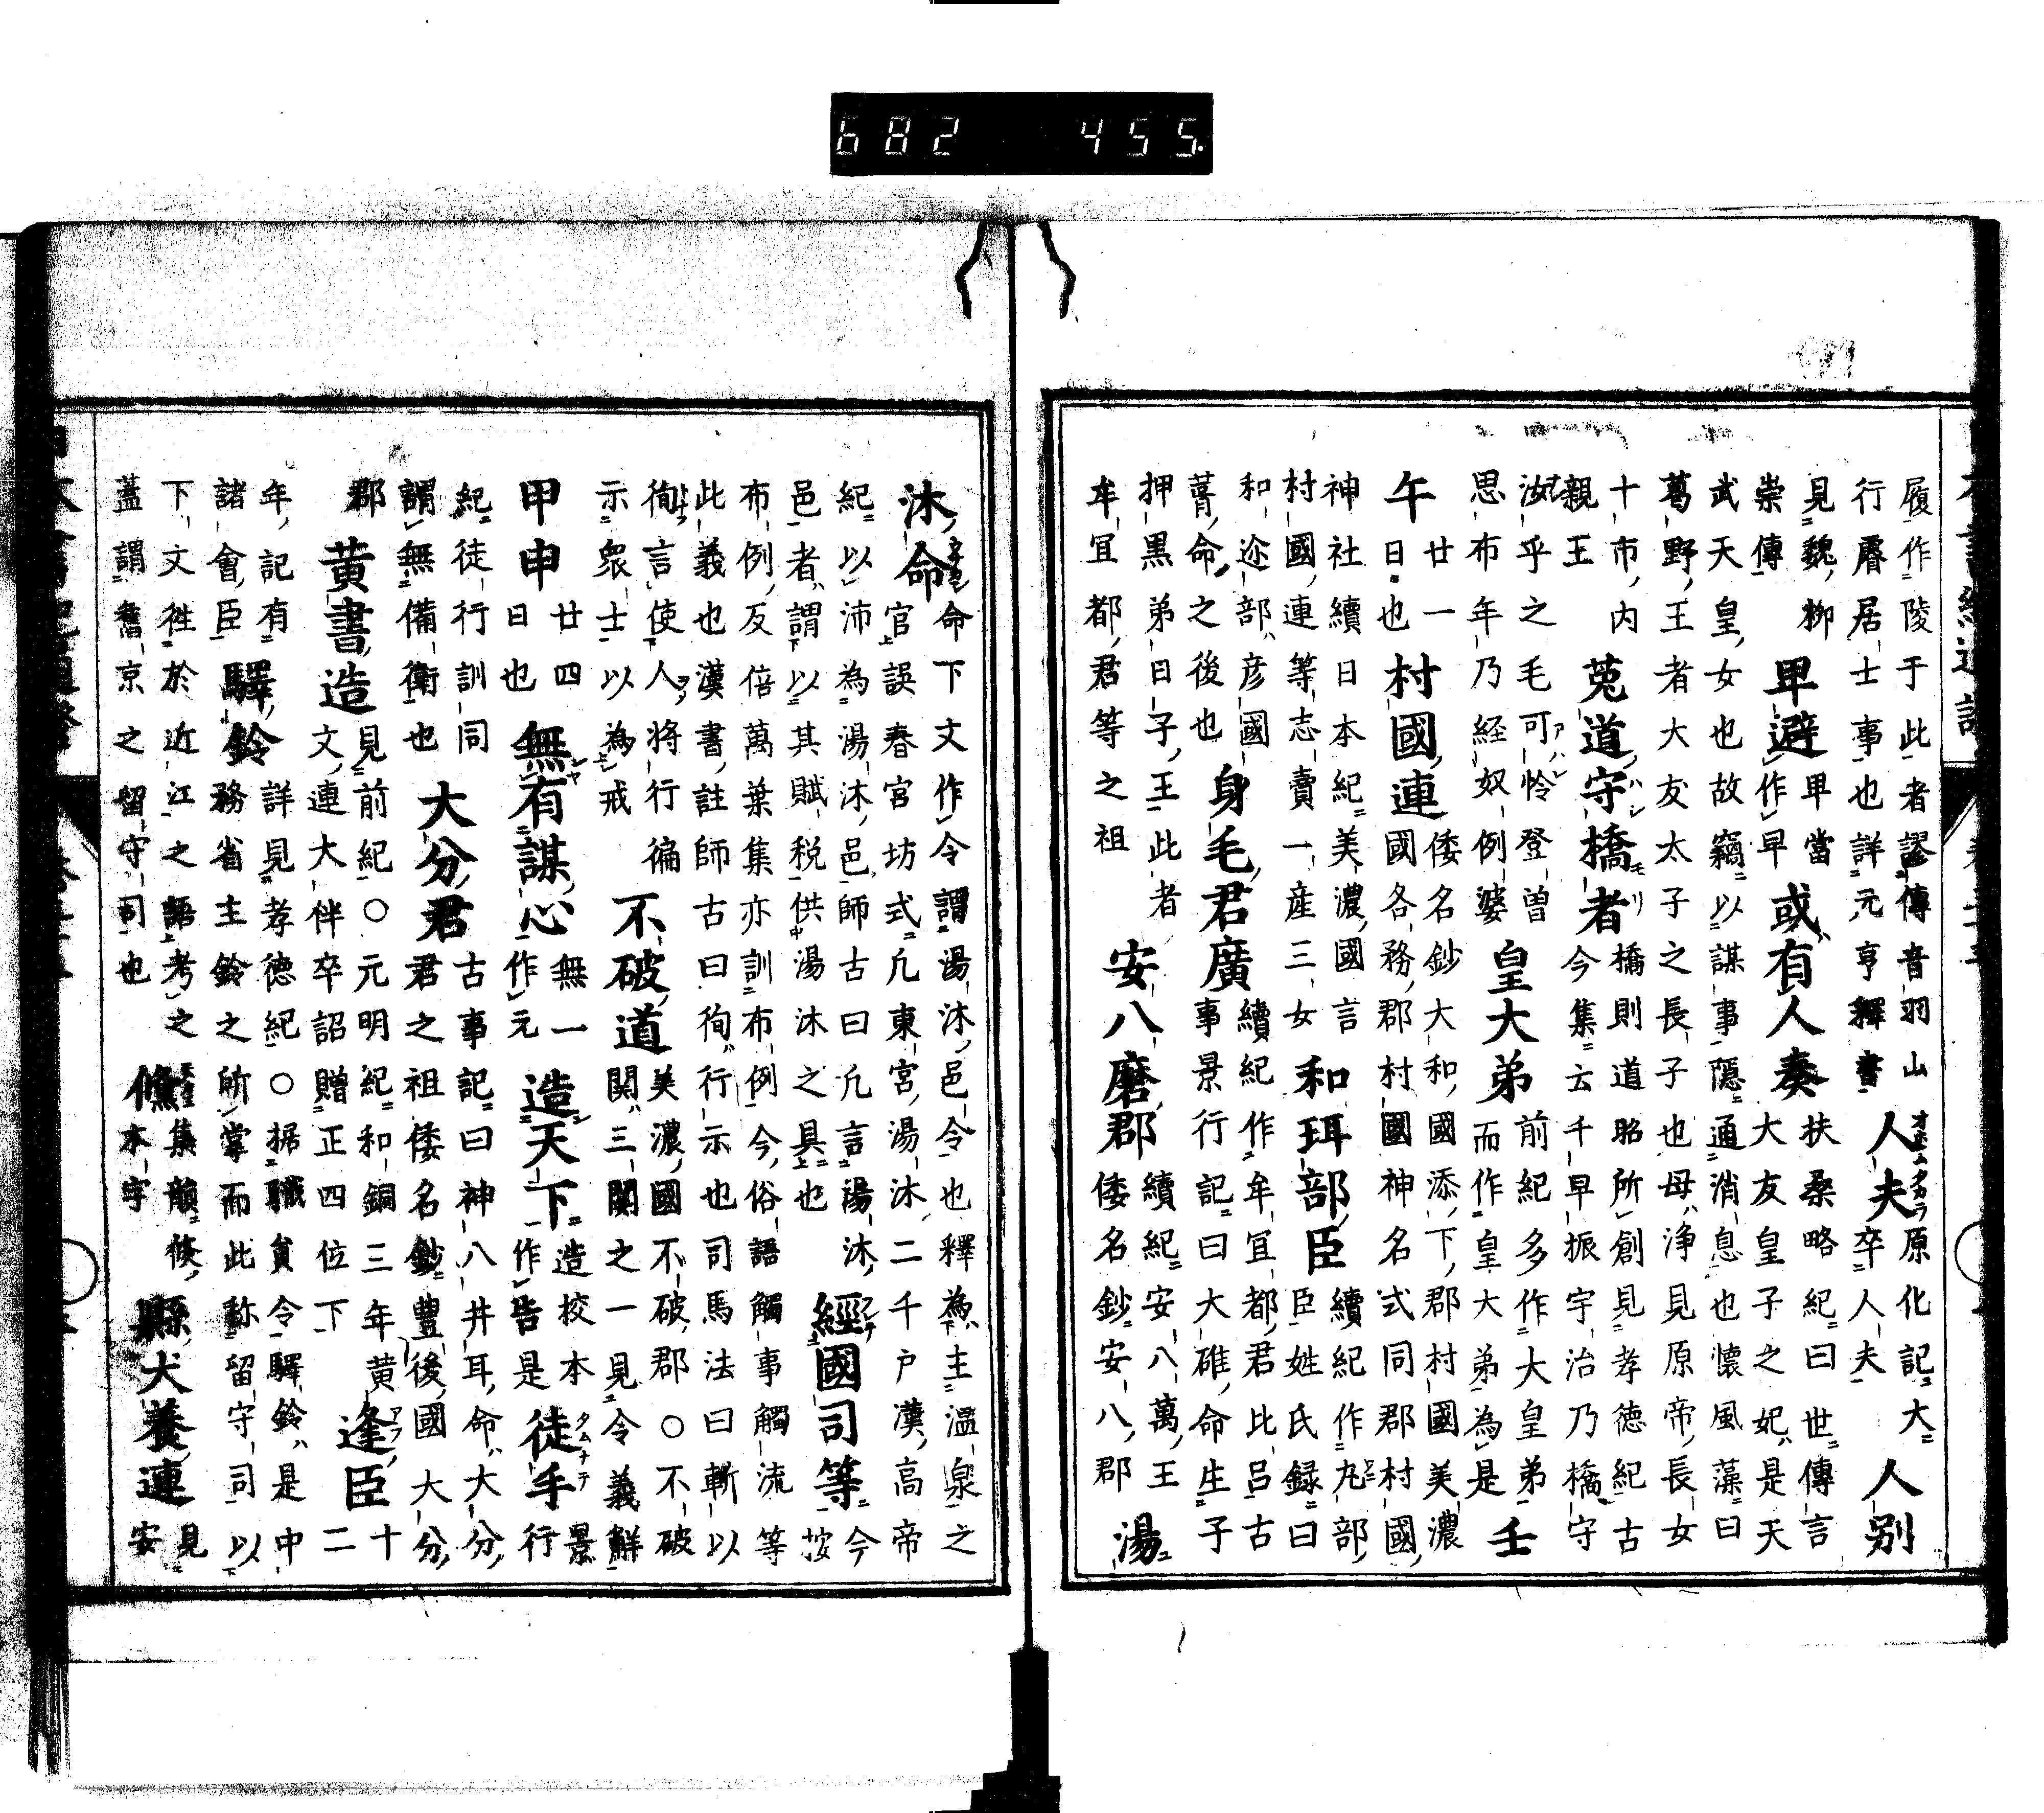 履作陵于此者謬傳音羽山
行辱居士事也詳元亨釋書
人夫
原化記大
卒人夫
人別
見魏柳
崇傳
早避
早當
作早
或有人奏
扶桑略紀曰世傳言
大友皇子之妃是天
武天皇女也故竊以謀事隱通消息也懷風藻曰
葛野王者大友太子之長子也母浄見原帝長女
十市内
親王
菟道守橋者
橋則道昭所創見孝徳紀古
今集云千早振宇治乃橋守
汝乎之毛可怜登曽
思布年乃経奴例婆
皇大弟
前紀多作大皇弟
而作皇大弟為是
壬
午
廿一
日也
村國連
倭名鈔大和國添下郡村國美濃
國各務郡村國神名式同郡村國
神社續日本紀美濃國言
村國連等志賣一産三女
和珥部臣
續紀作丸部
臣姓氏録曰
和迩部彦國
葺命之後也
身毛君廣
續紀作牟冝都君比呂古
事景行記曰大碓命生子
押黒弟日子王此者
牟冝都君等之祖
安八磨郡
續紀安八萬王
倭名鈔安八郡
湯
沐命
命下文作令謂湯沐邑令也釋為主溫泉之
官誤春宮坊式凢東宮湯沐二千戸漢高帝
紀以沛為湯沐邑師古曰凢言湯沐
邑者謂以其賦税供湯沐之具也
經國司等
今
按
布例反倍萬葉集亦訓布例今俗語觸事觸流等
此義也漢書註師古曰徇行示也司馬法曰斬以
徇言使人将行徧
示衆士以為戒
不破道
美濃國不破郡○不破
関三関之一見令義解
甲申
廿四
日也
無有謀心
無一
作元
造天下
造校本
作告是
徒手
景
行
紀徒行訓同
謂無備衛也
大分君
古事記曰神八井耳命大分
君之祖倭名鈔豊後國大分
郡
黄書造
見前紀○元明紀和銅三年黄
文連大伴卒詔贈正四位下
逢臣
十
二
年記有
諸會臣
驛鈴
詳見孝徳紀○据職貟令驛鈴是中
務省主鈴之所掌而此称留守司以
下文徃於近江之語考之
蓋謂舊京之留守司也
儵
集韻倏
本字
縣犬養連
見
安